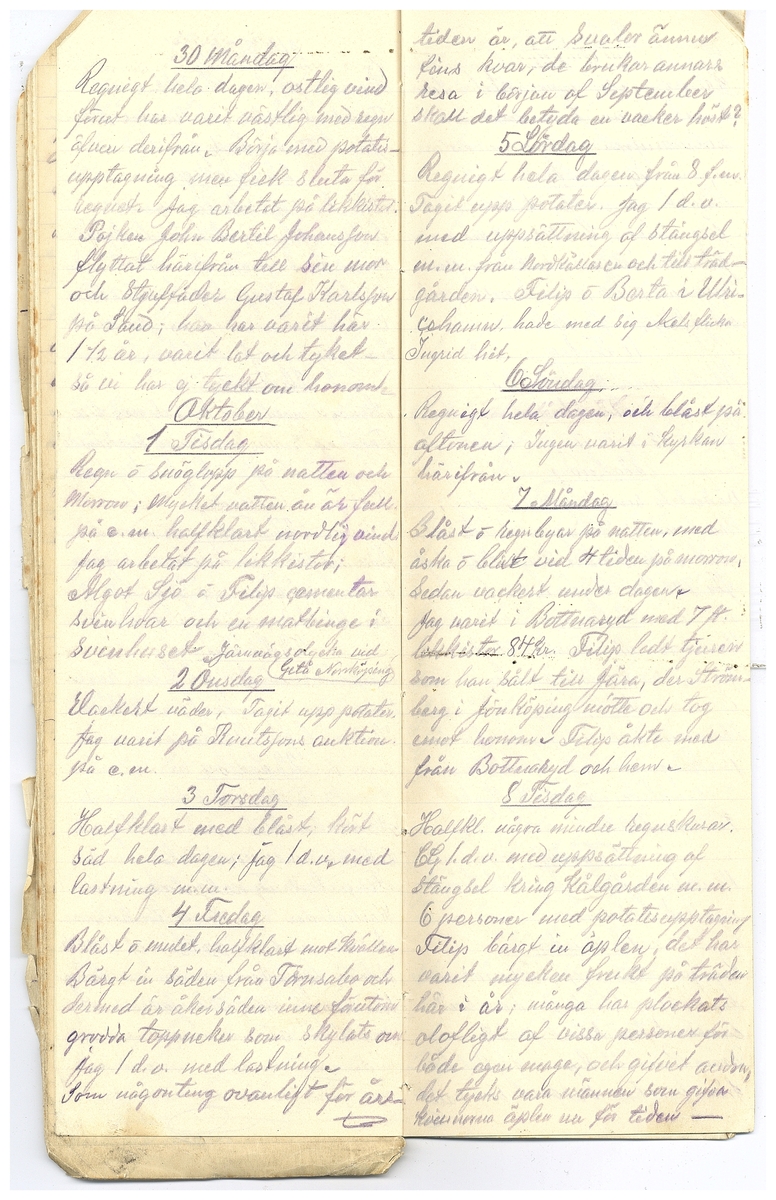 30 Måndag
Regnigt hela dagen, ostlig vind
förut har varit västlig med regn
äfven derifrån. Börja med potatis-
upptagning men fick sluta för
regnet. Jag arbetat på likkistor.
Pojken John Bertil Johansson
flyttat härifrån till sin mor
och styffader Gustaf Karlsson
på Sand; han har varit här
1 1/2 år, varit lat och tyket
så vi har ej tyckt om honom.
Oktober
1 Tisdag
Regn o snöglopp på natten och
morron; mycket vatten ån är full.
på e.m. halfklart nordlig vind
jag arbetat på likkistor;
Algot Sjö o Filip cementar
svinhoar och en matbinge i
svinhuset. Järnvägsolycka vid
Getå Norrköping
2 Onsdag
Vackert väder, Tagit upp potater,
jag varit på Knutssons auktion
på e.m.
3 Torsdag
Halfklart med blåst; kört
säd hela dagen; jag 1 d.v. med
lastning m.m.
4 Fredag
Blåst o mulet, halfklart mot kvällen
Bärgt in säden från Törnsabo och
dermed är åkersäden inne förutom
grodda toppneker som skylats om
jag 1 d.v. med lastning.
Som någonting ovanligt för års-
tiden är, att Svalor ännu
fins kvar, de brukar annars
resa i början af September
skall det betyda en vacker höst?
5 Lördag
Regnigt hela dagen från 8 f.m.
Tagit upp potater. jag 1 d.v.
med uppsättning af stängsel
m.m. från Nordkållasen och till träd-
gården. Filip o Berta i Ulri-
çehamn. hade med sig flicka
Ingrid hit.
6 Söndag
Regnigt hela dagen, och blåst på
aftonen; Ingen varit i kyrkan
härifrån.
7 Måndag
Blåst o regnbyar på natten, med
åska o blixt vid 4 tiden på morron,
Sedan vackert under dagen.
Jag varit i Bottnaryd med 7 st.
likkistor 84 Kr. Filip ledt tjuren
som han sålt till Jära, der Ström-
berg i Jönköping mötte och tog
emot honom. Filip åkte med
från Bottnaryd och hem.
8 Tisdag
Halfkl. några mindre regnskurar.
1 d.v. med uppsättning af
stängsel kring kålgården m.m.
6 personer med potatisupptagning
Filip bärgt in äplen, det har
varit mycken frukt på träden
här i år; många har plockats
olofligt af vissa personer för
både egen mage, och gifvit andra,
det tycks vara männen som gifva
kvinnorna äplen nu för tiden —